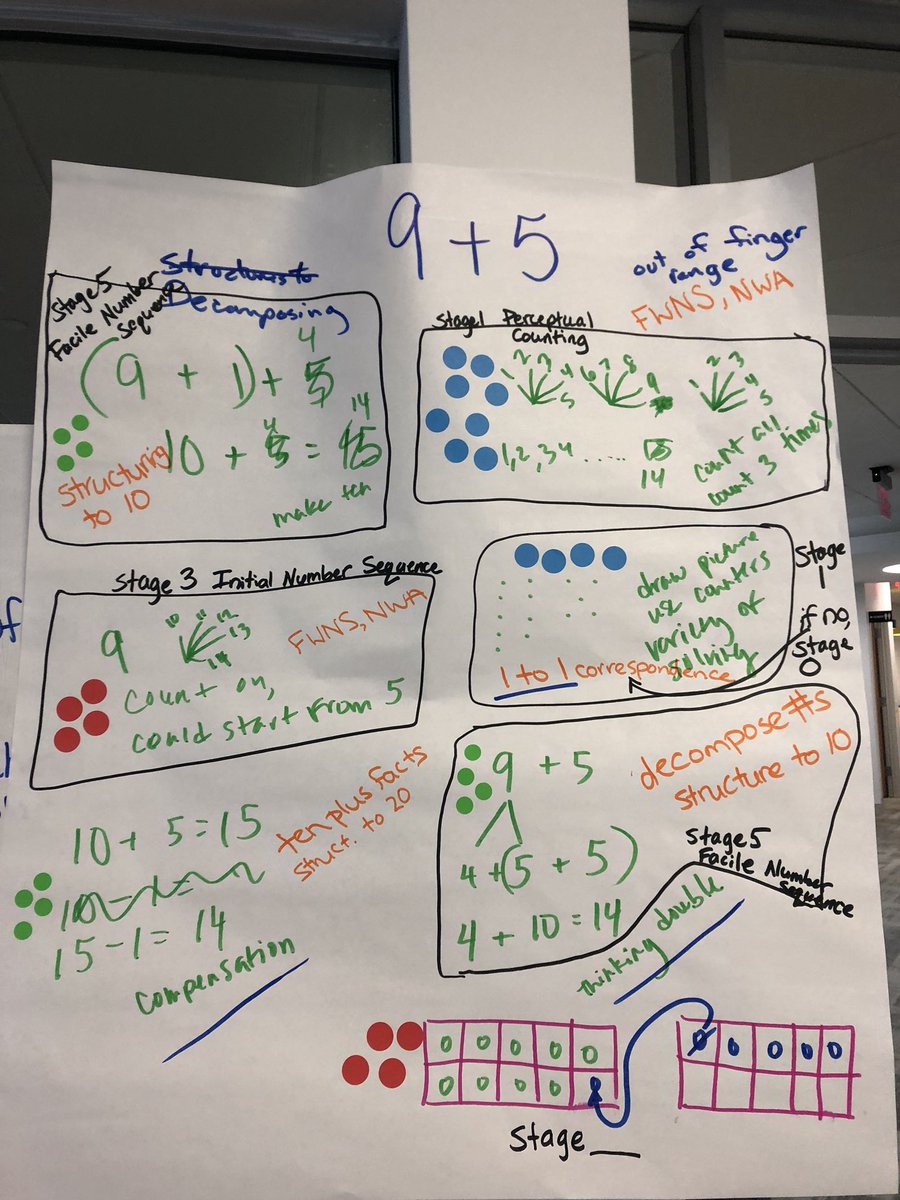 9 + 5
out of finger
range
FWNS, NWA
Structure to
Decomposing
Stage 5
Facile Number
Sequence
4
(9 + 1) + 5
14
4
10 + 5 = 15
structuring
to 10
make ten
Stage 1 Perceptual
Counting
1 2 3 4 5
6 7 8 9
1 2 3 4 5
1, 2, 3 4 ..... 15
14
count all
count 3 times
Stage 3 Initial Number Sequence
9
10 11 12 13 14
FWNS, NWA
count on,
could start from 5
draw picture
use counters
variety of
solving
1 to 1 correspondence
Stage
1
if no,
Stage
0
10 + 5 = 15
15 - 1 = 14
compensation
ten plus facts
struct. to 20
9 + 5
4 + (5 + 5)
4 + 10 = 14
decompose #s
structure to 10
Stage 5
Facile Number
Sequence
thinking double
Stage __